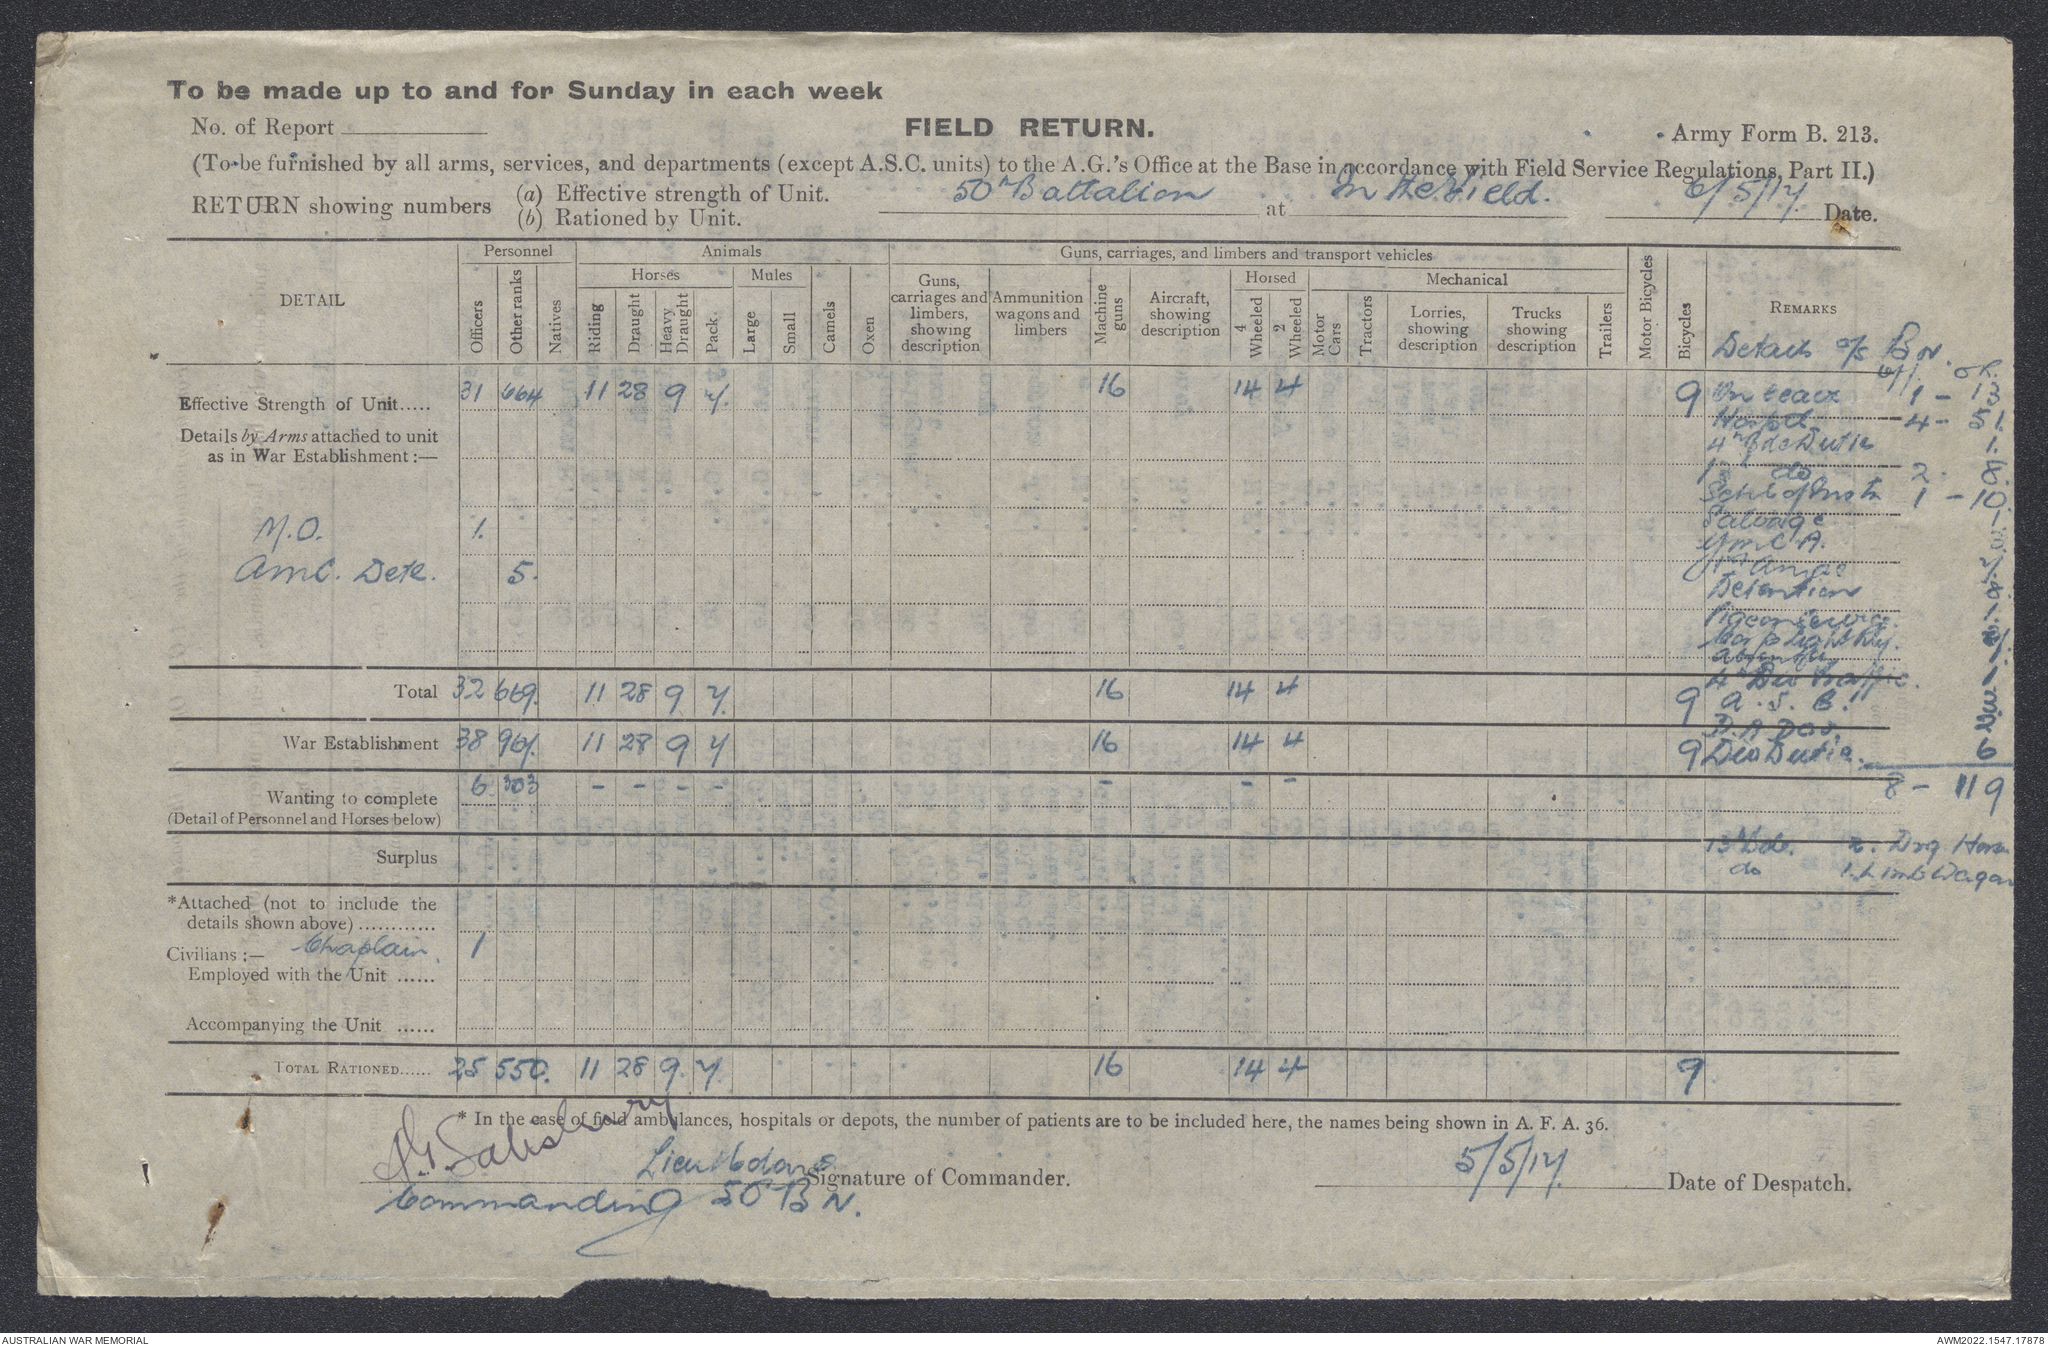 To be made up to and for Sunday in each week
No. of Report
FIELD RETURN.
Army Form B. 213.
(To be furnished by all arms, services, and departments (except A.S.C. units) to the A.G.'s Office at the Base in accordance with Field Service Regulations, Part II.)
RETURN showing numbers
(a) Effective strength of Unit.
(b) Rationed by Unit.
50th Battalion at In the Field. 6/5/17. Date.
DETAIL
Personnel
Animals
Guns, carriages, and limbers and transport vehicles
Horses
Mules
Horsed
Mechanical
Officers
Other ranks
Natives
Riding
Draught
Heavy Draught
Pack.
Large
Small
Camels
Oxen
Guns, carriages and limbers, showing description
Ammunition wagons and limbers
Machine guns
Aircraft, showing description
4 Wheeled
2 Wheeled
Motor Cars
Tractors
Lorries, showing description
Trucks showing description
Trailers
Motor Bicycles
Bicycles
REMARKS
Details o/s BN.
Off. OR.
Effective Strength of Unit..... 31 664 11 28 9 7. 16 14 4 9
On leave 1 - 13
Details by Arms attached to unit
as in War Establishment :—
Hosptl. 4 - 51.
4th Bde Dutie 1.
13 do 2. 8.
Schl of Instn 1 - 10.
Salvage 1.
Y M C A.
M.O. 1.
AMC. Dets. 5.
1st Anzac
Detention
Pigeon Service.
Corps Light Rly.
Absentees
4th Div Traffic.
Total 32 669. 11 28 9 7. 16 14 4 9
A. S. C.
D.A.DOS.
War Establishment 38 967. 11 28 9 7 16 14 4 9
Div Dutie. 6
8 - 119
Wanting to complete 6 303 - - - - - - -
(Detail of Personnel and Horses below)
Surplus
13 Bde. 2. Drg Horse
do 1. Limb Wagon
*Attached (not to include the
details shown above) ............
Civilians :— Chaplain. 1
Employed with the Unit ......
Accompanying the Unit ......
TOTAL RATIONED...... 25 550. 11 28 9. 7. 16 14 4 9
* In the case of field ambulances, hospitals or depots, the number of patients are to be included here, the names being shown in A. F. A. 36.
A.G. Salisbury
Signature of Commander.
5/5/17.
Date of Despatch.
Commanding 50th BN.
AUSTRALIAN WAR MEMORIAL
AWM2022.1547.17878